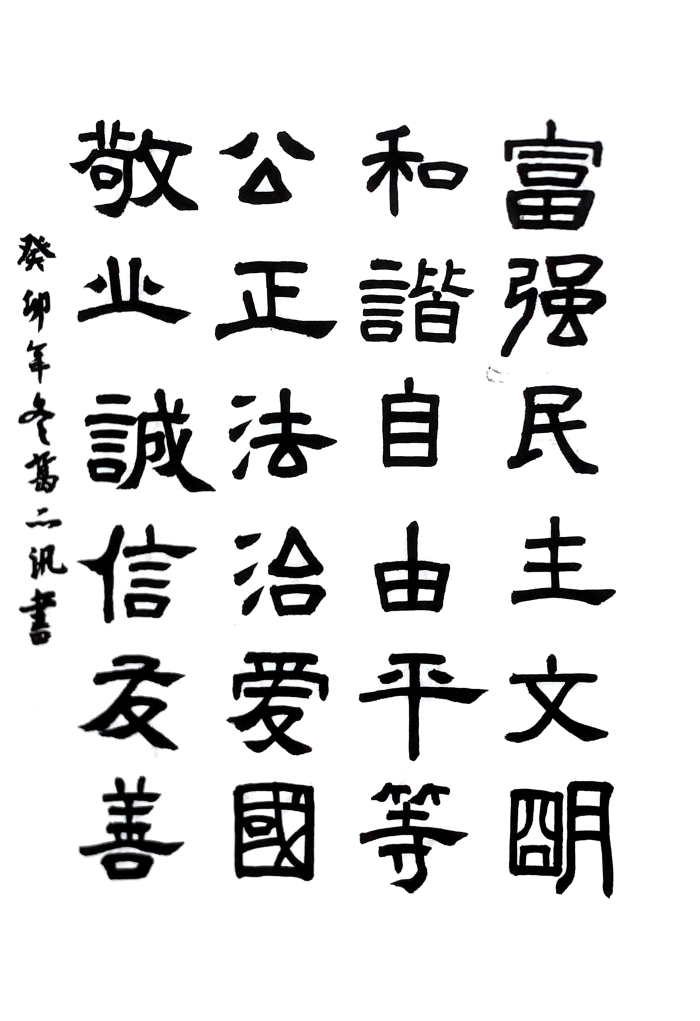 富强民主文明
和諧自由平等
公正法治爱國
敬业誠信友善
癸卯年冬葛二汛書